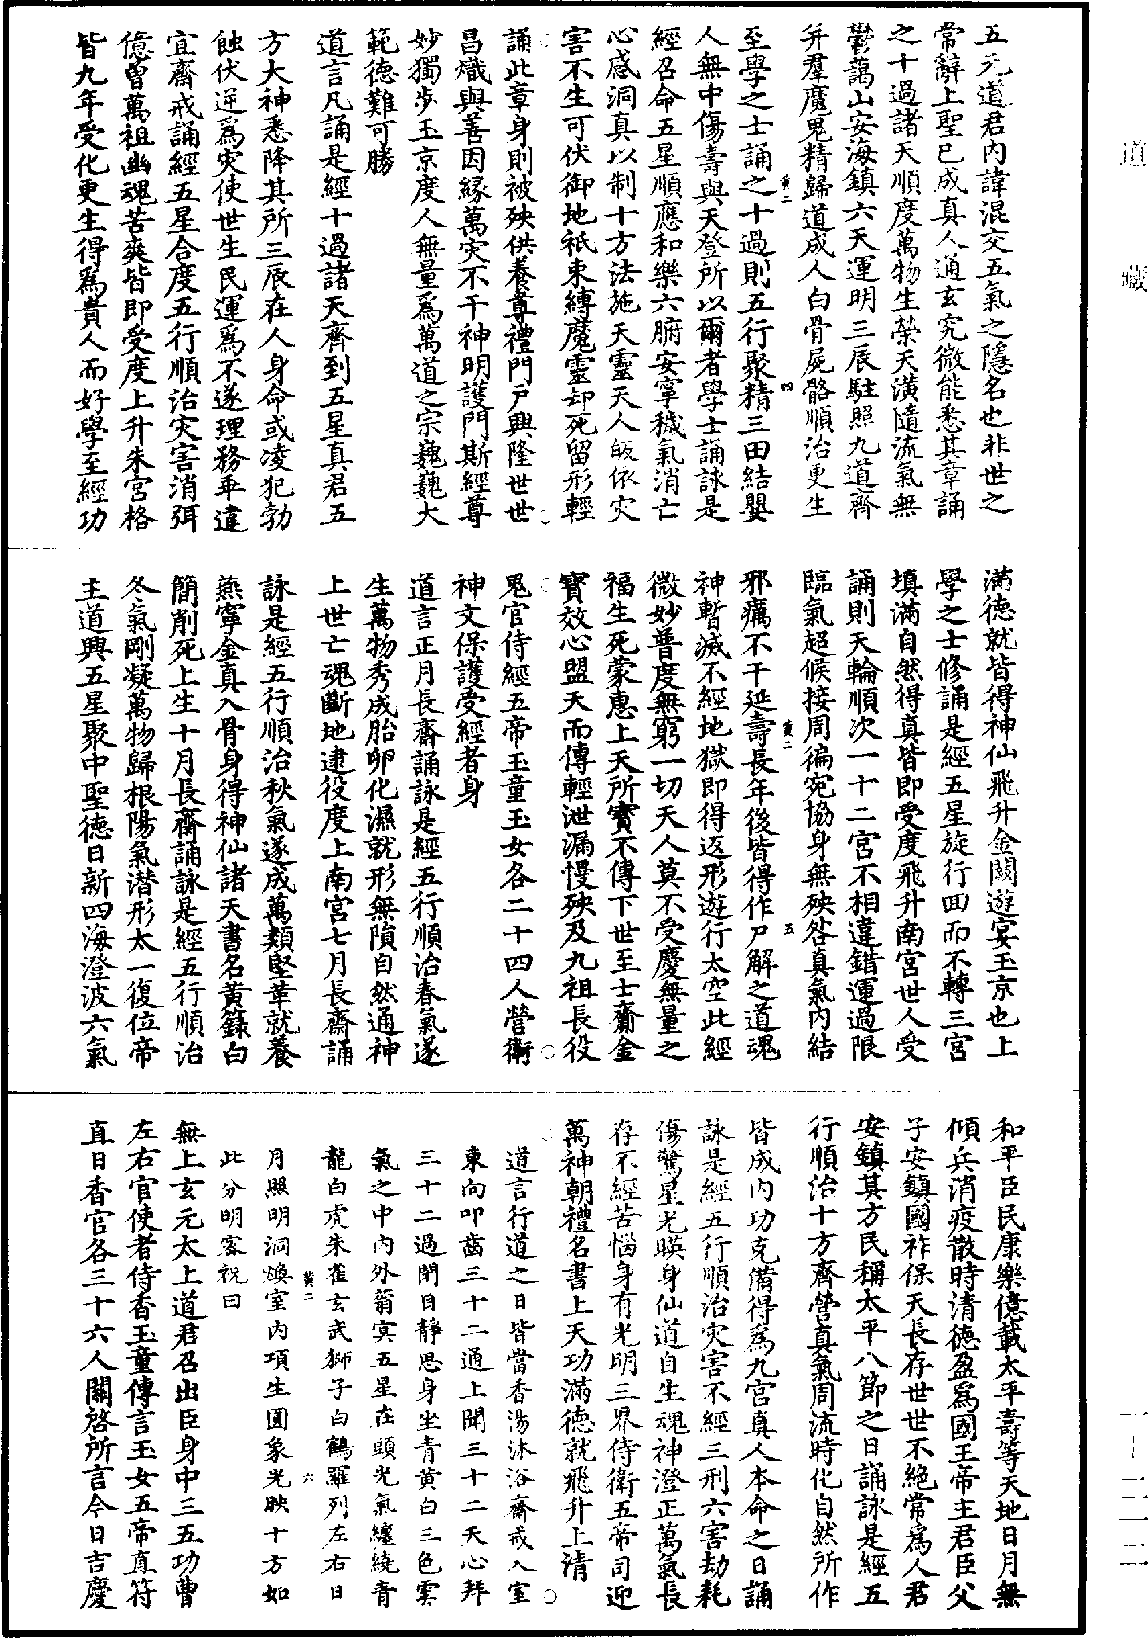 五元道君内諱混交五氣之隱名也非世之
常辭上聖已成真人通玄究微能悉其章誦
之十過諸天順度萬物生榮天潢隨流氣無
鬱藹山安海鎮六天運明三辰駐照九道齊
并羣魔鬼精歸道成人白骨屍骼順治更生
黃二
四
至學之士誦之十過則五行聚精三田結嬰
人無中傷壽與天登所以爾者學士誦詠是
經召命五星順應和樂六腑安寧穢氣消亡
心感洞真以制十方法施天靈天人皈依灾
害不生可伏御地祇束縛魔靈却死留形輕
誦此章身則被殃供養尊禮門戸興隆世世
昌熾與善因緣萬灾不干神明護門斯經尊
妙獨步玉京度人無量為萬道之宗巍巍大
範德難可勝
道言凡誦是經十過諸天齊到五星真君五
方大神悉降其所三辰在人身命或凌犯勃
蝕伏逆為灾使世生民運為不遂理務乖違
宜齋戒誦經五星合度五行順治灾害消弭
億曾萬祖幽魂苦爽皆即受度上升朱宮格
皆九年受化更生得為貴人而好學至經功
滿德就皆得神仙飛升金闕遊宴玉京也上
學之士修誦是經五星旋行回而不轉三宮
填滿自然得真皆即受度飛升南宮世人受
誦則天輪順次一十二宮不相違錯運過限
臨氣超候接周徧宛協身無殃咎真氣内結
黃二
五
邪癘不干延壽長年後皆得作尸解之道魂
神暫滅不經地獄即得返形遊行太空此經
微妙普度無窮一切天人莫不受慶無量之
福生死蒙惠上天所寶不傳下世至士齎金
寶效心盟天而傳輕泄漏慢殃及九祖長役
鬼官侍經五帝玉童玉女各二十四人營衛
神文保護受經者身
道言正月長齋誦詠是經五行順治春氣遂
生萬物秀成胎卵化濕就形無隕自然通神
上世亡魂斷地逮役度上南宮七月長齋誦
詠是經五行順治秋氣遂成萬類堅華就養
燕寧金真入骨身得神仙諸天書名黃籙白
簡削死上生十月長齋誦詠是經五行順治
冬氣剛凝萬物歸根陽氣潛形太一復位帝
主道興五星聚中聖德日新四海澄波六氣
和平臣民康樂億載太平壽等天地日月無
傾兵消疫散時清德盈為國王帝主君臣父
子安鎮國祚保天長存世世不絕常為人君
安鎮其方民稱太平八節之日誦詠是經五
行順治十方齊營真氣周流時化自然所作
皆成内功克備得為九宮真人本命之日誦
詠是經五行順治灾害不經三刑六害劫耗
傷驚星光暎身仙道自生魂神澄正萬氣長
存不經苦惱身有光明三界侍衛五帝司迎
萬神朝禮名書上天功滿德就飛升上清
道言行道之日皆當香湯沐浴齋戒入室
東向叩齒三十二通上聞三十二天心拜
三十二過閉目靜思身坐青黃白三色雲
氣之中内外蓊冥五星在頭光氣纏繞青
龍白虎朱雀玄武獅子白鶴羅列左右日
黃二
六
月照明洞煥室内項生圓象光映十方如
此分明密祝曰
無上玄元太上道君召出臣身中三五功曹
左右官使者侍香玉童傳言玉女五帝直符
直日香官各三十六人關啓所言今日吉慶
道藏